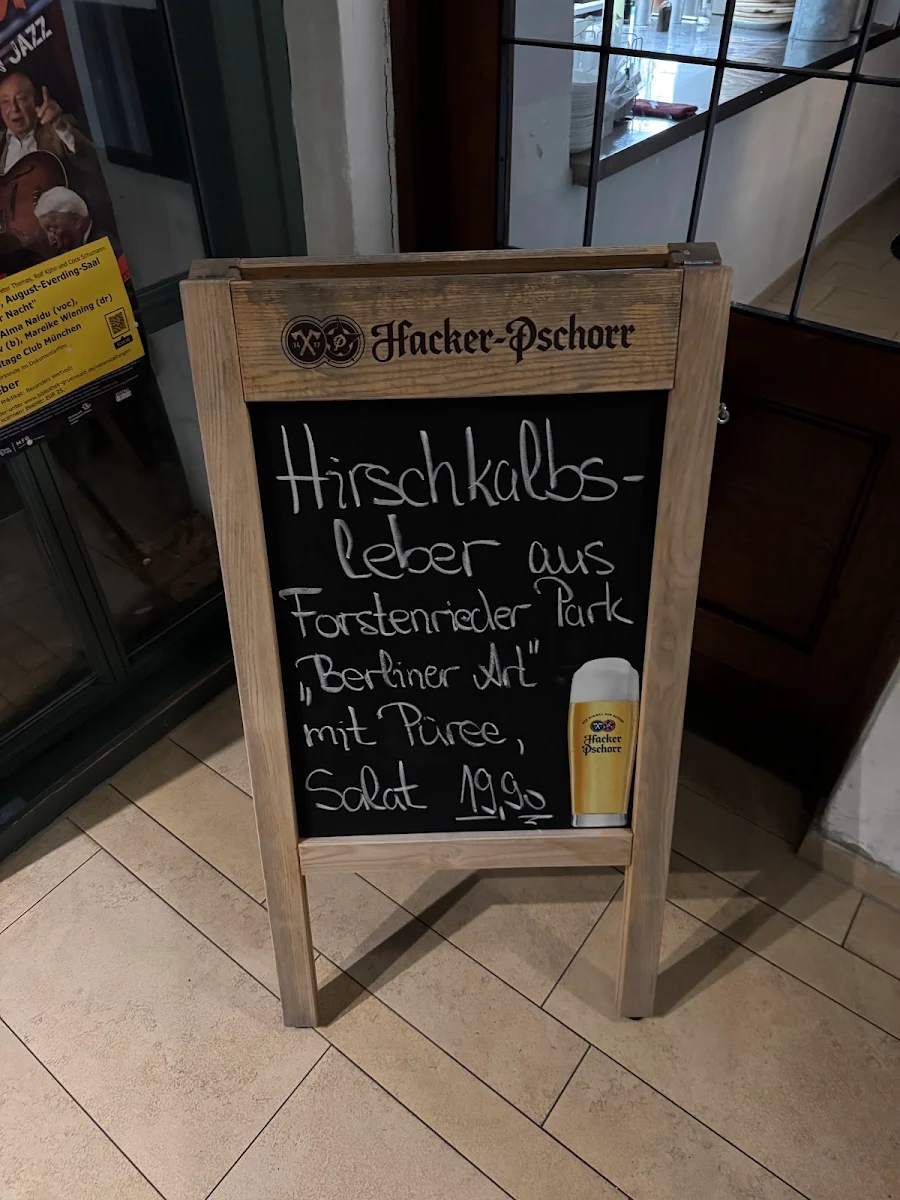 JAZZ
August-Everding-Saal
Nacht"
Alma Naidu (voc),
(b), Mareike Wiening (dr)
tage Club München
Hacker-Pschorr
Hirschkalbs-
leber aus
Forstenrieder Park
„Berliner Art"
mit Püree,
Salat 19,90
Hacker
Pschorr